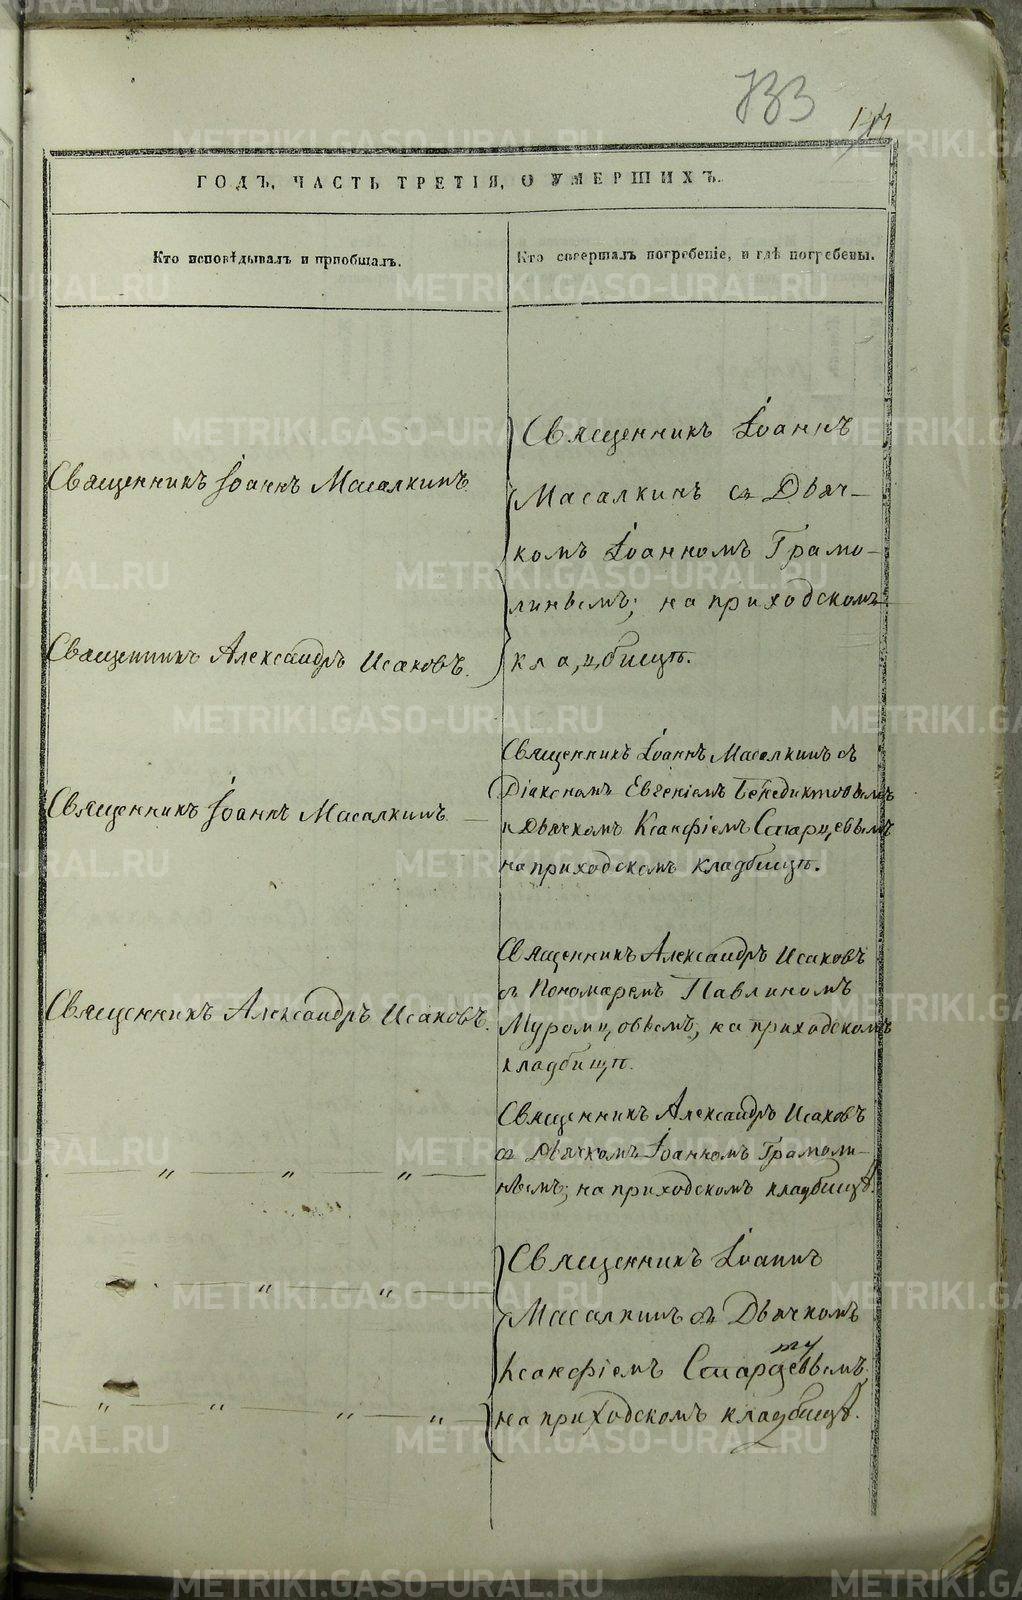 733
ГОДЪ, ЧАСТЬ ТРЕТІЯ, О УМЕРШИХЪ.
Кто исповѣдывалъ и пріобщалъ.
Кто совершалъ погребеніе, и гдѣ погребены.
Священникъ Іоаннъ Масалкинъ.
Священникъ Іоаннъ
Масалкинъ съ Дьяч-
комъ Іоанномъ Грамо-
линымъ; на приходскомъ
кладбищѣ.
Священникъ Александръ Исаковъ.
Священникъ Іоаннъ Масалкинъ
Священникъ Іоаннъ Масалкинъ съ
Діакономъ Евгеніемъ Бенедиктовымъ
и Дьячкомъ Ксанфіемъ Старцевымъ
на приходскомъ кладбищѣ.
Священникъ Александръ Исаковъ.
Священникъ Александръ Исаковъ
съ Пономаремъ Павлиномъ
Муромцовымъ, на приходскомъ
кладбищѣ.
" " "
Священникъ Александръ Исаковъ
съ Дьячкомъ Іоанномъ Грамоли-
нымъ; на приходскомъ кладбищѣ.
" "
Священникъ Іоаннъ
Масалкинъ съ Дьячкомъ
Ксанфіемъ Старцевымъ
на приходскомъ кладбищѣ.
" " " "
METRIKI.GASO-URAL.RU